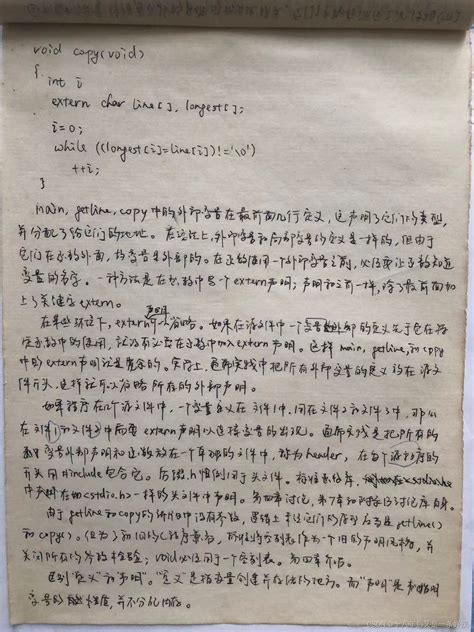 void copy(void)
{
int i
extern char line[], longest[];
i=0;
while ((longest[i]=line[i])!='\0')
++i;
}
main, getline, copy中的外部变量在最前面几行定义,这声明了它们的类型,
并分配了给它们的地址。在语法上,外部变量和局部变量的定义是一样的,但由于
它们在函数的外面,故变量是外部的。在函数使用一个外部变量之前,必须要让函数知道
变量的名字。一种方法是在函数中写一个extern声明;声明和之前一样,除了最前面加
上了关键字extern。
在某些环境下,extern声明可以省略。如果在源文件中一个外部变量的定义先于它在特
定函数中的使用,就没有必要在函数中加入extern声明。这样main, getline,和copy
中的extern声明就是多余的。实际上,通常实践中把所有外部变量的定义放在源文
件开头,这样就可以省略所有的外部声明。
如果程序在几个源文件中,一个变量定义在文件1中,用在文件2和文件3中,那么
在文件2和文件3中需要extern声明以连接变量的出现。通常实践是把所有的
变量外部声明和函数放在一个单独的文件中,称为header,在每个源程序的
开头用#include包含它。后缀.h惯例用于头文件。标准库函数,
中声明在如<stdio.h>一样的头文件中声明。第四章讨论,第7章和附录B讨论库自身。
由于getline和copy的 中没有参数,逻辑上 它们的原型应当是getline()
和copy()。但为了和旧的C程序兼容, 空列表作为一个旧的声明风格,并
关闭所有的参数检验;void必须用于一个空列表。第四章介绍。
区别"定义"和"声明"。"定义"是指变量创建并分配的地方。而"声明"是指明
变量的性质,并不分配内存。